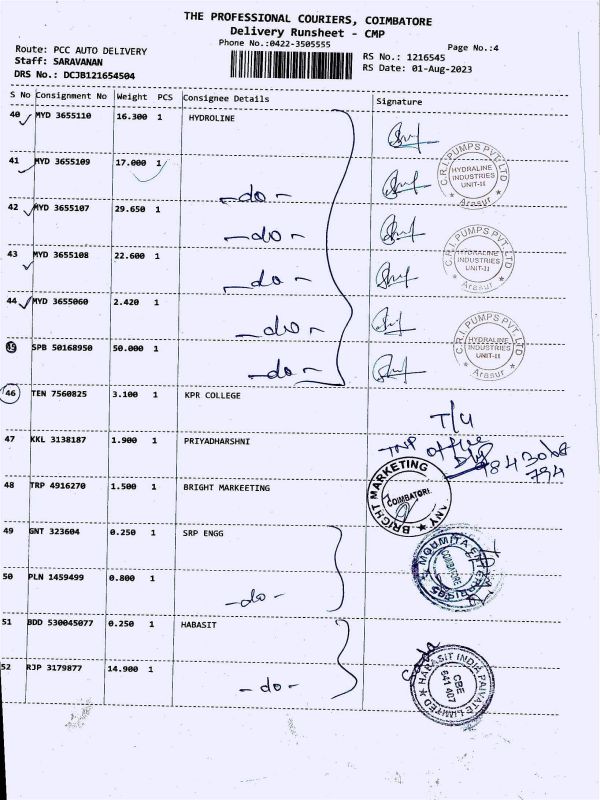 THE PROFESSIONAL COURIERS, COIMBATORE
Delivery Runsheet - CMP
Phone No.:0422-3505555
Page No.:4
Route: PCC AUTO DELIVERY
Staff: SARAVANAN
DRS No.: DCJB121654504
RS No.: 1216545
RS Date: 01-Aug-2023
S No Consignment No Weight PCS Consignee Details Signature
40 MYD 3655110 16.300 1 HYDROLINE
41 MYD 3655109 17.000 1 -do-
C.R.I. PUMPS PVT. LTD
HYDRALINE
INDUSTRIES
UNIT-II
Arasur
42 MYD 3655107 29.650 1 -do-
43 MYD 3655108 22.600 1 -do-
C.R.I. PUMPS PVT. LTD
HYDRALINE
INDUSTRIES
UNIT-II
Arasur
44 MYD 3655060 2.420 1 -do-
45 SPB 50168950 50.000 1 -do-
C.R.I. PUMPS PVT. LTD
HYDRALINE
INDUSTRIES
UNIT-II
Arasur
46 TEN 7560825 3.100 1 KPR COLLEGE
T/4
47 KKL 3138187 1.900 1 PRIYADHARSHNI
TNP office
794
48 TRP 4916270 1.500 1 BRIGHT MARKEETING
BRIGHT MARKETING
49 GNT 323604 0.250 1 SRP ENGG
MOUMITA ENTERPRISES
COIMBATORE
50 PLN 1459499 0.800 1 -do-
51 BDD 530045077 0.250 1 HABASIT
52 RJP 3179877 14.900 1 -do-
HABASIT INDIA PRIVATE LIMITED
CBE
641 407